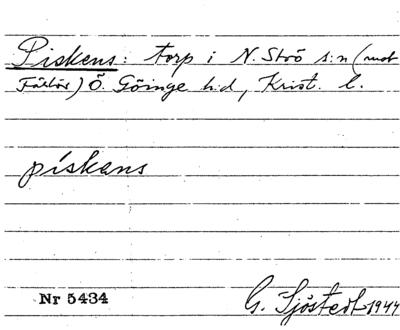 Piskens: torp i N. Strö s:n (mot
Färlöv) Ö. Göinge h:d, Krist. l.
pískans
Nr 5434
G. Sjöstedt 1944